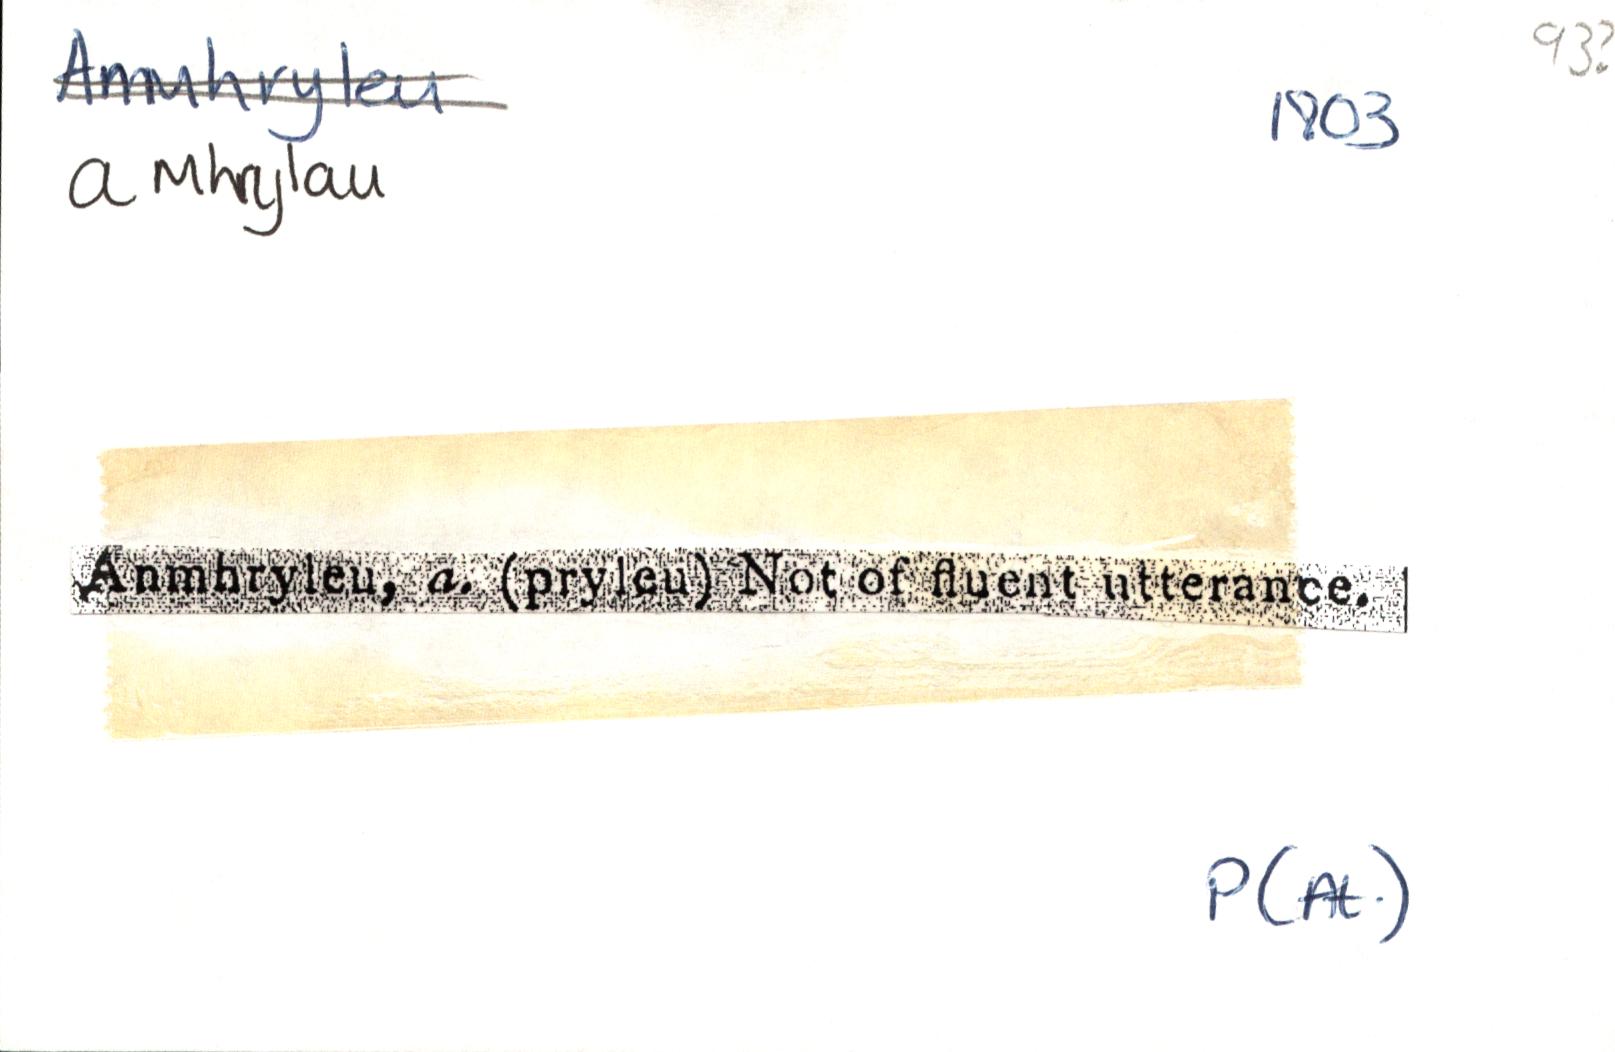 93?
Anmhryleu
1803
a Mhrylau
Anmhryleu, a. (pryleu) Not of fluent utterance.
P(At.)